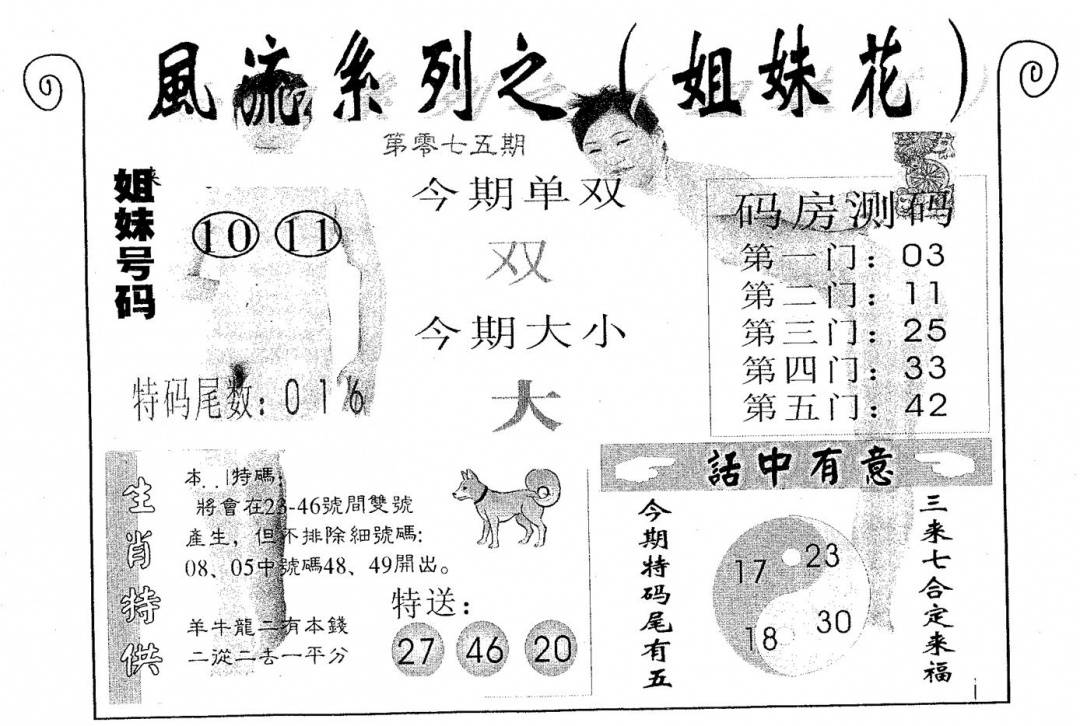 風流系列之（姐妹花）
第零七五期
姐妹号码
10 11
特码尾数：016
今期单双
双
今期大小
大
码房测码
第一门：03
第二门：11
第三门：25
第四门：33
第五门：42
生肖特供
特碼：
將會在23-46號間雙號
產生，但不排除細號碼：
08、05中號碼48、49開出。
羊牛龍二有本錢
二從二去一平分
特送：
27 46 20
話中有意
今期特码尾有五
17 23
18 30
三来七合定来福